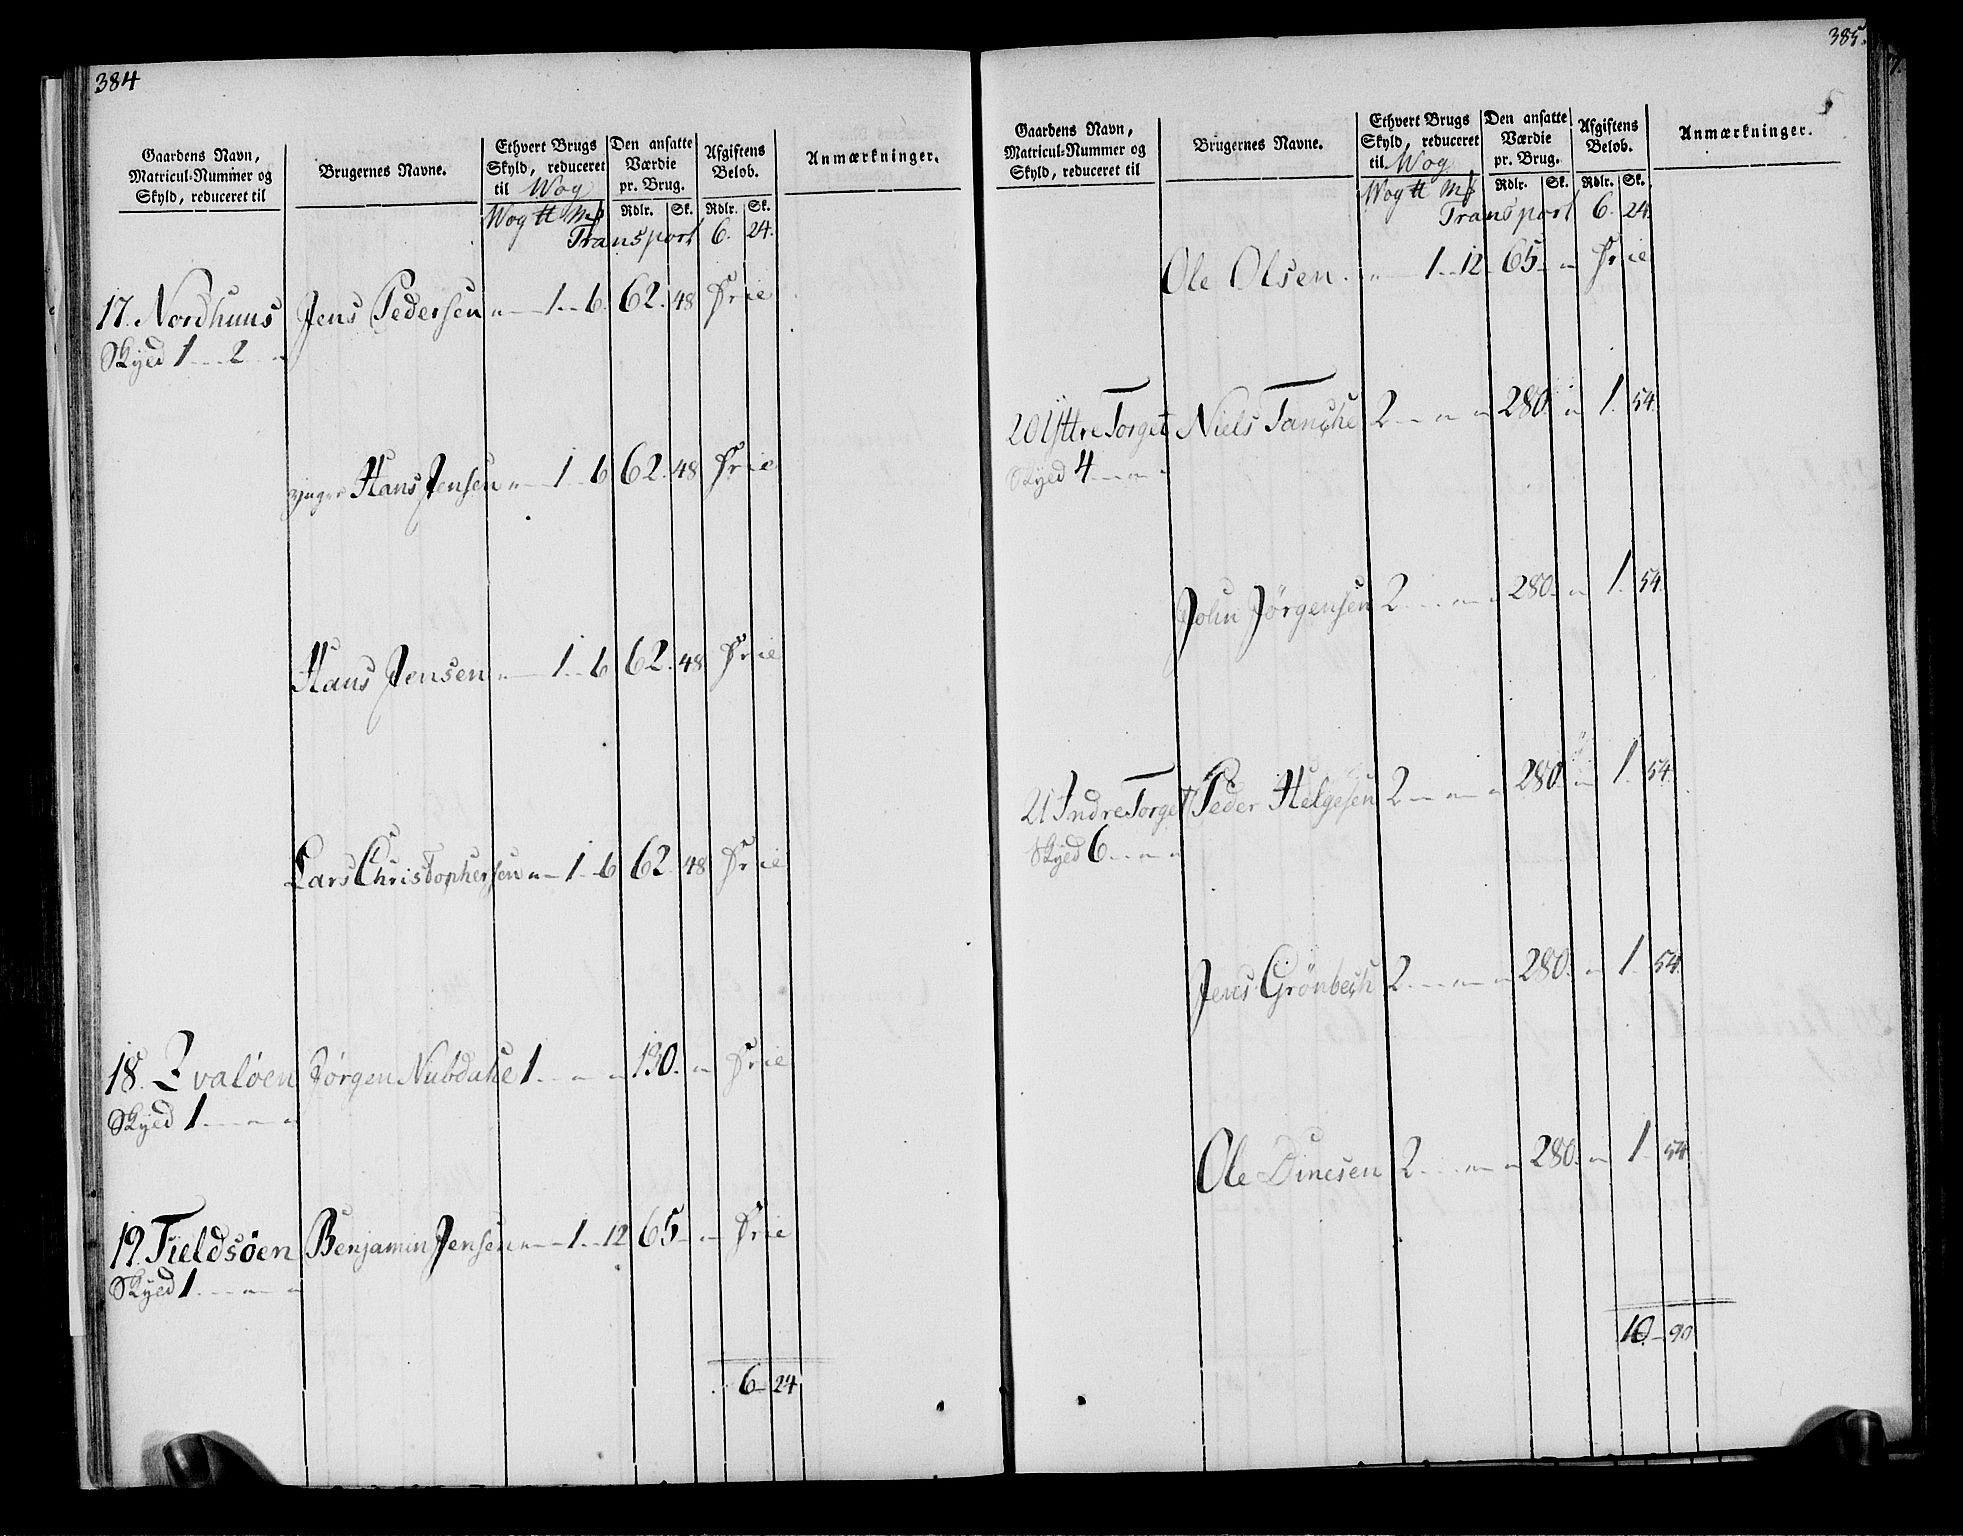 384
Gaardens Navn, Matricul-Nummer og Skyld, reduceret til
Brugernes Navne.
Ethvert Brugs Skyld, reduceret til Wog
Den ansatte Værdie pr. Brug.
Afgiftens Beløb.
Anmærkninger.
Wog ℔ Mꝭ Rdlr. Sk. Rdlr. Sk.
Transport 6. 24.
17. Nordhuus Jens Pedersen " — 1 .. 6. 62. 48 Frie
Skyld 1 .. 2 "
yngre Hans Jensen " — 1 .. 6 62. 48 Frie
Hans Jensen " — 1 .. 6 62. 48 Frie
Lars Christophersen " — 1 .. 6 62. 48 Frie
18. Qvaløen Jørgen 1 .. " .. " 130. " Frie
Skyld 1 .. " .. "
19. Fieldsøen Benjamin Jensen " — 1 .. 12 65 .. " Frie
Skyld 1 .. " .. "
6 24
385.
Gaardens Navn, Matricul-Nummer og Skyld, reduceret til
Brugernes Navne.
Ethvert Brugs Skyld, reduceret til Wog
Den ansatte Værdie pr. Brug.
Afgiftens Beløb.
Anmærkninger.
Wog ℔ Mꝭ Rdlr. Sk. Rdlr. Sk.
Transport 6. 24.
Ole Olsen. " — 1 .. 12. 65 .. " Frie
20 Yttre Torget Niels Tanche 2 .. " .. " 280. " 1. 54.
Skyld 4 .. " .. "
John Jørgensen 2 .. " .. " 280. " 1. 54.
21 Indre Torget Peder Helgesen 2 .. " .. " 280. " 1. 54.
Skyld 6 .. " .. "
Jens Grönbech 2 .. " .. " 280. " 1. 54.
Ole Dinesen 2 .. " .. " 280. " 1. 54
10 90